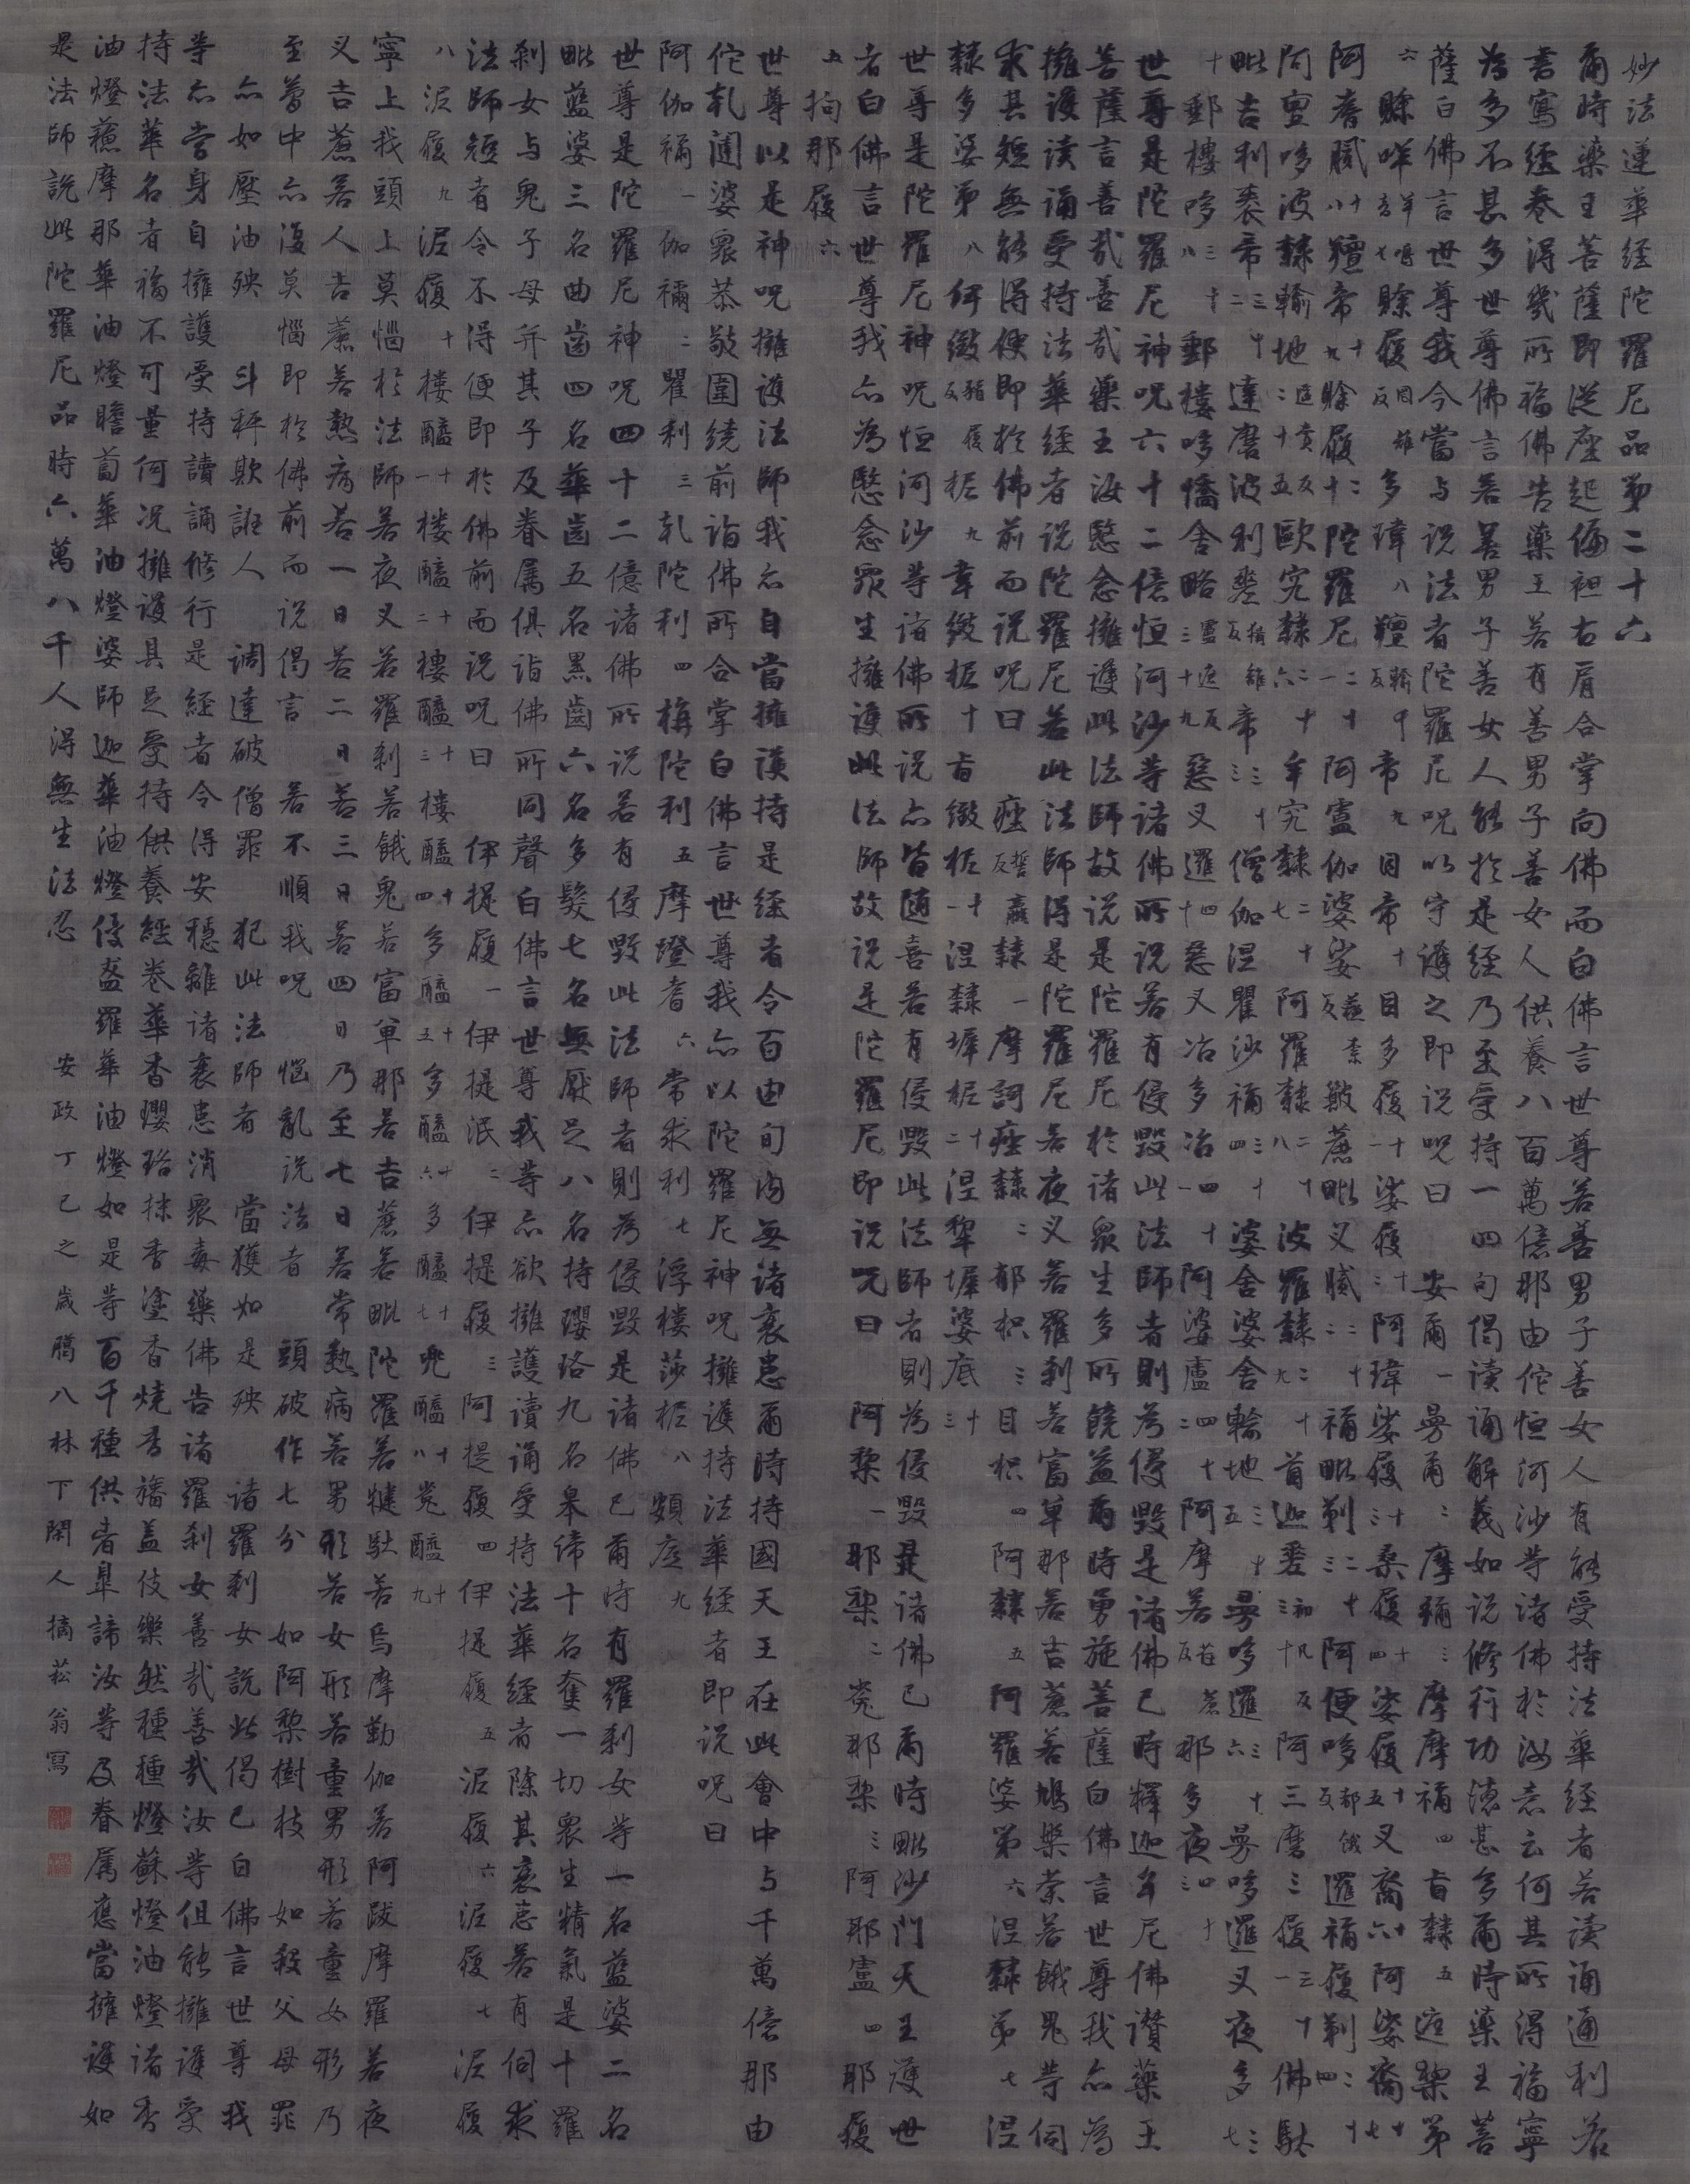 妙法蓮華經陀羅尼品第二十六
爾時藥王菩薩即從座起偏袒右肩合掌向佛而白佛言世尊若善男子善女人有能受持法華経者若读誦通利若
書寫経卷得幾所福佛告藥王若有善男子善女人供養八百萬億那由佗恒河沙等諸佛於汝意云何其所得福寧
為多不甚多世尊佛言若善男子善女人能於是経乃至受持一四句偈读誦解義如说修行功德甚多爾時藥王菩
薩白佛言世尊我今當与说法者陀羅尼呪以守護之即说呪曰 安爾一曼爾二摩祢三摩摩祢四旨隸五遮棃第
六賒咩羊鳴音七賒履罔雉反多瑋八羶輸千反帝九目帝十目多履十一娑履十二阿瑋娑履十三桑履十四娑履十五叉裔十六阿娑裔十七
阿耆膩十八羶帝十九賒履二十陀羅尼二十一阿盧伽婆娑蘇柰反簸蔗毗叉膩二十二祢毗剃二十三阿便哆都餓反邏祢履剃二十四
阿亶哆波隸輸地途賣反二十五歐究隸二十六牟究隸二十七阿羅隸二十八波羅隸二十九首迦差初几反三十阿三磨三履三十一佛馱
毗吉利袠帝三十二達磨波利差猜離反帝三十三僧伽涅瞿沙祢三十四婆舍婆舍輸地三十五曼哆邏三十六曼哆邏叉夜多三十七
郵樓哆三十八郵樓哆憍舍略盧遮反三十九惡叉邏四十惡叉冶多冶四十一阿婆盧四十二阿摩若荏蔗反那多夜四十三
世尊是陀羅尼神呪六十二億恒河沙等諸佛所说若有侵毀此法師者則為侵毀是諸佛已時釋迦牟尼佛讚藥王
菩薩言善哉善哉藥王汝愍念擁護此法師故说是陀羅尼於諸衆生多所饒益爾時勇施菩薩白佛言世尊我亦為
擁護读誦受持法華経者说陀羅尼若此法師得是陀羅尼若夜叉若羅刹若富單那若吉蔗若鳩槃荼若餓鬼等伺
求其短無能得便即於佛前而说呪曰 痤誓螺反隸一摩訶痤隸二郁枳三目枳四阿隸五阿羅婆第六涅隸第七涅
隸多婆第八伊緻猪履反柅九韋緻柅十旨緻柅十一涅隸墀柅十二涅犂墀婆底十三
世尊是陀羅尼神呪恒河沙等諸佛所说亦皆随喜若有侵毀此法師者則為侵毀是諸佛已爾時毗沙門天王護世
者白佛言世尊我亦為愍念衆生擁護此法師故说是陀羅尼即说呪曰 阿棃一那棃二㝹那棃三阿那盧四那履
五拘那履六
世尊以是神呪擁護法師我亦自當擁護持是経者令百由旬內無諸衰患爾時持國天王在此會中与千萬億那由
佗乹闥婆衆恭敬圍繞前詣佛所合掌白佛言世尊我亦以陀羅尼神呪擁護持法華経者即说呪曰
阿伽禰一伽禰二瞿利三乹陀利四栴陀利五摩蹬耆六常求利七浮樓莎柅八頞底九
世尊是陀羅尼神呪四十二億諸佛所说若有侵毀此法師者則為侵毀是諸佛已爾時有羅刹女等一名藍婆二名
毗藍婆三名曲齒四名華齒五名黑齒六名多髮七名無厭足八名持瓔珞九名皐帝十名奪一切衆生精氣是十羅
刹女与鬼子母并其子及眷属俱詣佛所同聲白佛言世尊我等亦欲擁護讀誦受持法華経者除其衰患若有伺求
法師短者令不得便即於佛前而说呪曰 伊提履一伊提泯二伊提履三阿提履四伊提履五泥履六泥履七泥履
八泥履九泥履十樓醯十一樓醯十二樓醯十三樓醯十四多醯十五多醯十六多醯十七兜醯十八㝹醯十九
寧上我頭上莫惱於法師若夜叉若羅刹若餓鬼若富單那若吉蔗若毗陀羅若犍馱若烏摩勒伽若阿跋摩羅若夜
叉吉蔗若人吉蔗若熱病若一日若二日若三日若四日乃至七日若常熱病若男形若女形若童男形若童女形乃
至夢中亦復莫惱即於佛前而说偈言 若不順我呪 惱亂说法者 頭破作七分 如阿棃樹枝 如殺父母罪
亦如壓油殃 斗秤欺誑人 調達破僧罪 犯此法師者 當獲如是殃 諸羅刹女說此偈已白佛言世尊我
等亦當身自擁護受持讀誦修行是経者令得安穩離諸衰患消衆毒藥佛告諸羅刹女善哉善哉汝等但能擁護受
持法華名者福不可量何況擁護具足受持供養経卷華香瓔珞抹香塗香燒香旛蓋伎樂然種種燈蘇燈油燈諸香
油燈蘇摩那華油燈瞻蔔華油燈婆師迦華油燈優鉢羅華油燈如是等百千種供者皐諦汝等及眷属應當擁護如
是法師說此陀羅尼品時六萬八千人得無生法忍 安政丁巳之歲臈八林下閑人摘菘翁寫